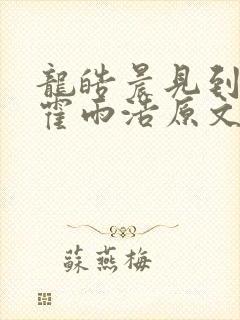 龍皓晨見到
霍雨浩原文
蘇燕梅